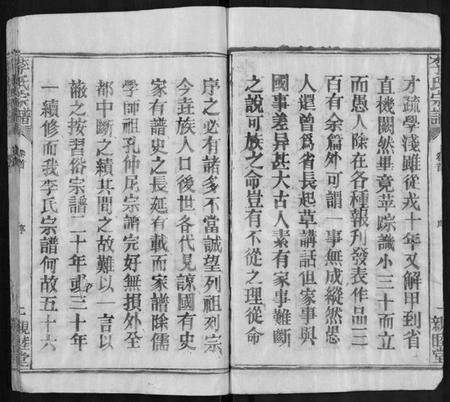 才疏学淺雖從戎十年又解甲到省
直機關然畢竟菲踪識小三十而立
而愚人除在各種報刊發表作品二
百有余篇外可謂一事無成縱然愚
人還曾爲省長起草講話但家事與
國事差异甚大古人素有家事難斷
之說可族之命豈有不從之理從命
序之必有諸多不當誠望列祖列宗
今垚族人口後世各代見諒國有史
家有譜史之長延有載而家譜除儒
學師祖孔仲尼宗譜完好無損外全
都中斷之續其間之故難以一言以
蔽之按習俗宗譜二十年或三十年
一續修而我李氏宗譜何故五十六
李氏宗譜
序
親睦堂